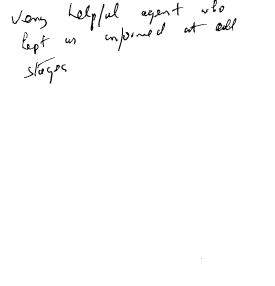 Very helpful agent who
kept us informed at all
stages